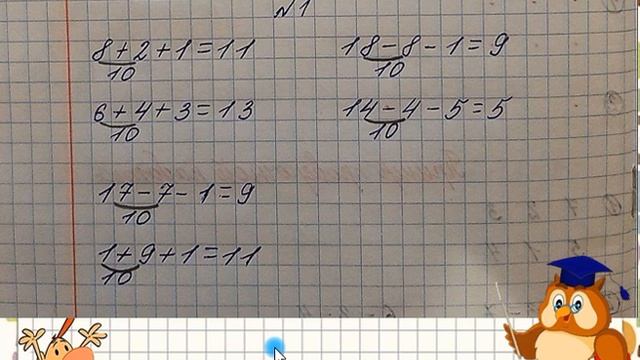 №1
8+2+1=11
10
18-8-1=9
10
6+4+3=13
10
14-4-5=5
10
17-7-1=9
10
1+9+1=11
10